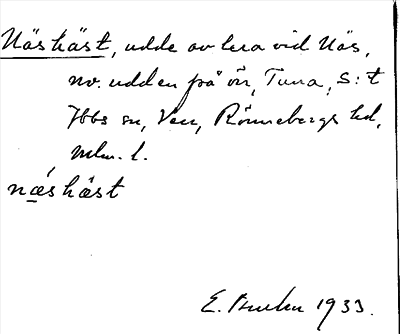 Näshäst, udde av lera vid Näs,
nv. udden på ön, Tuna, S:t
Ibbs sn, Ven, Rönnebergs hd,
mlm. l.
nǽ̣shäst
E. 1933.